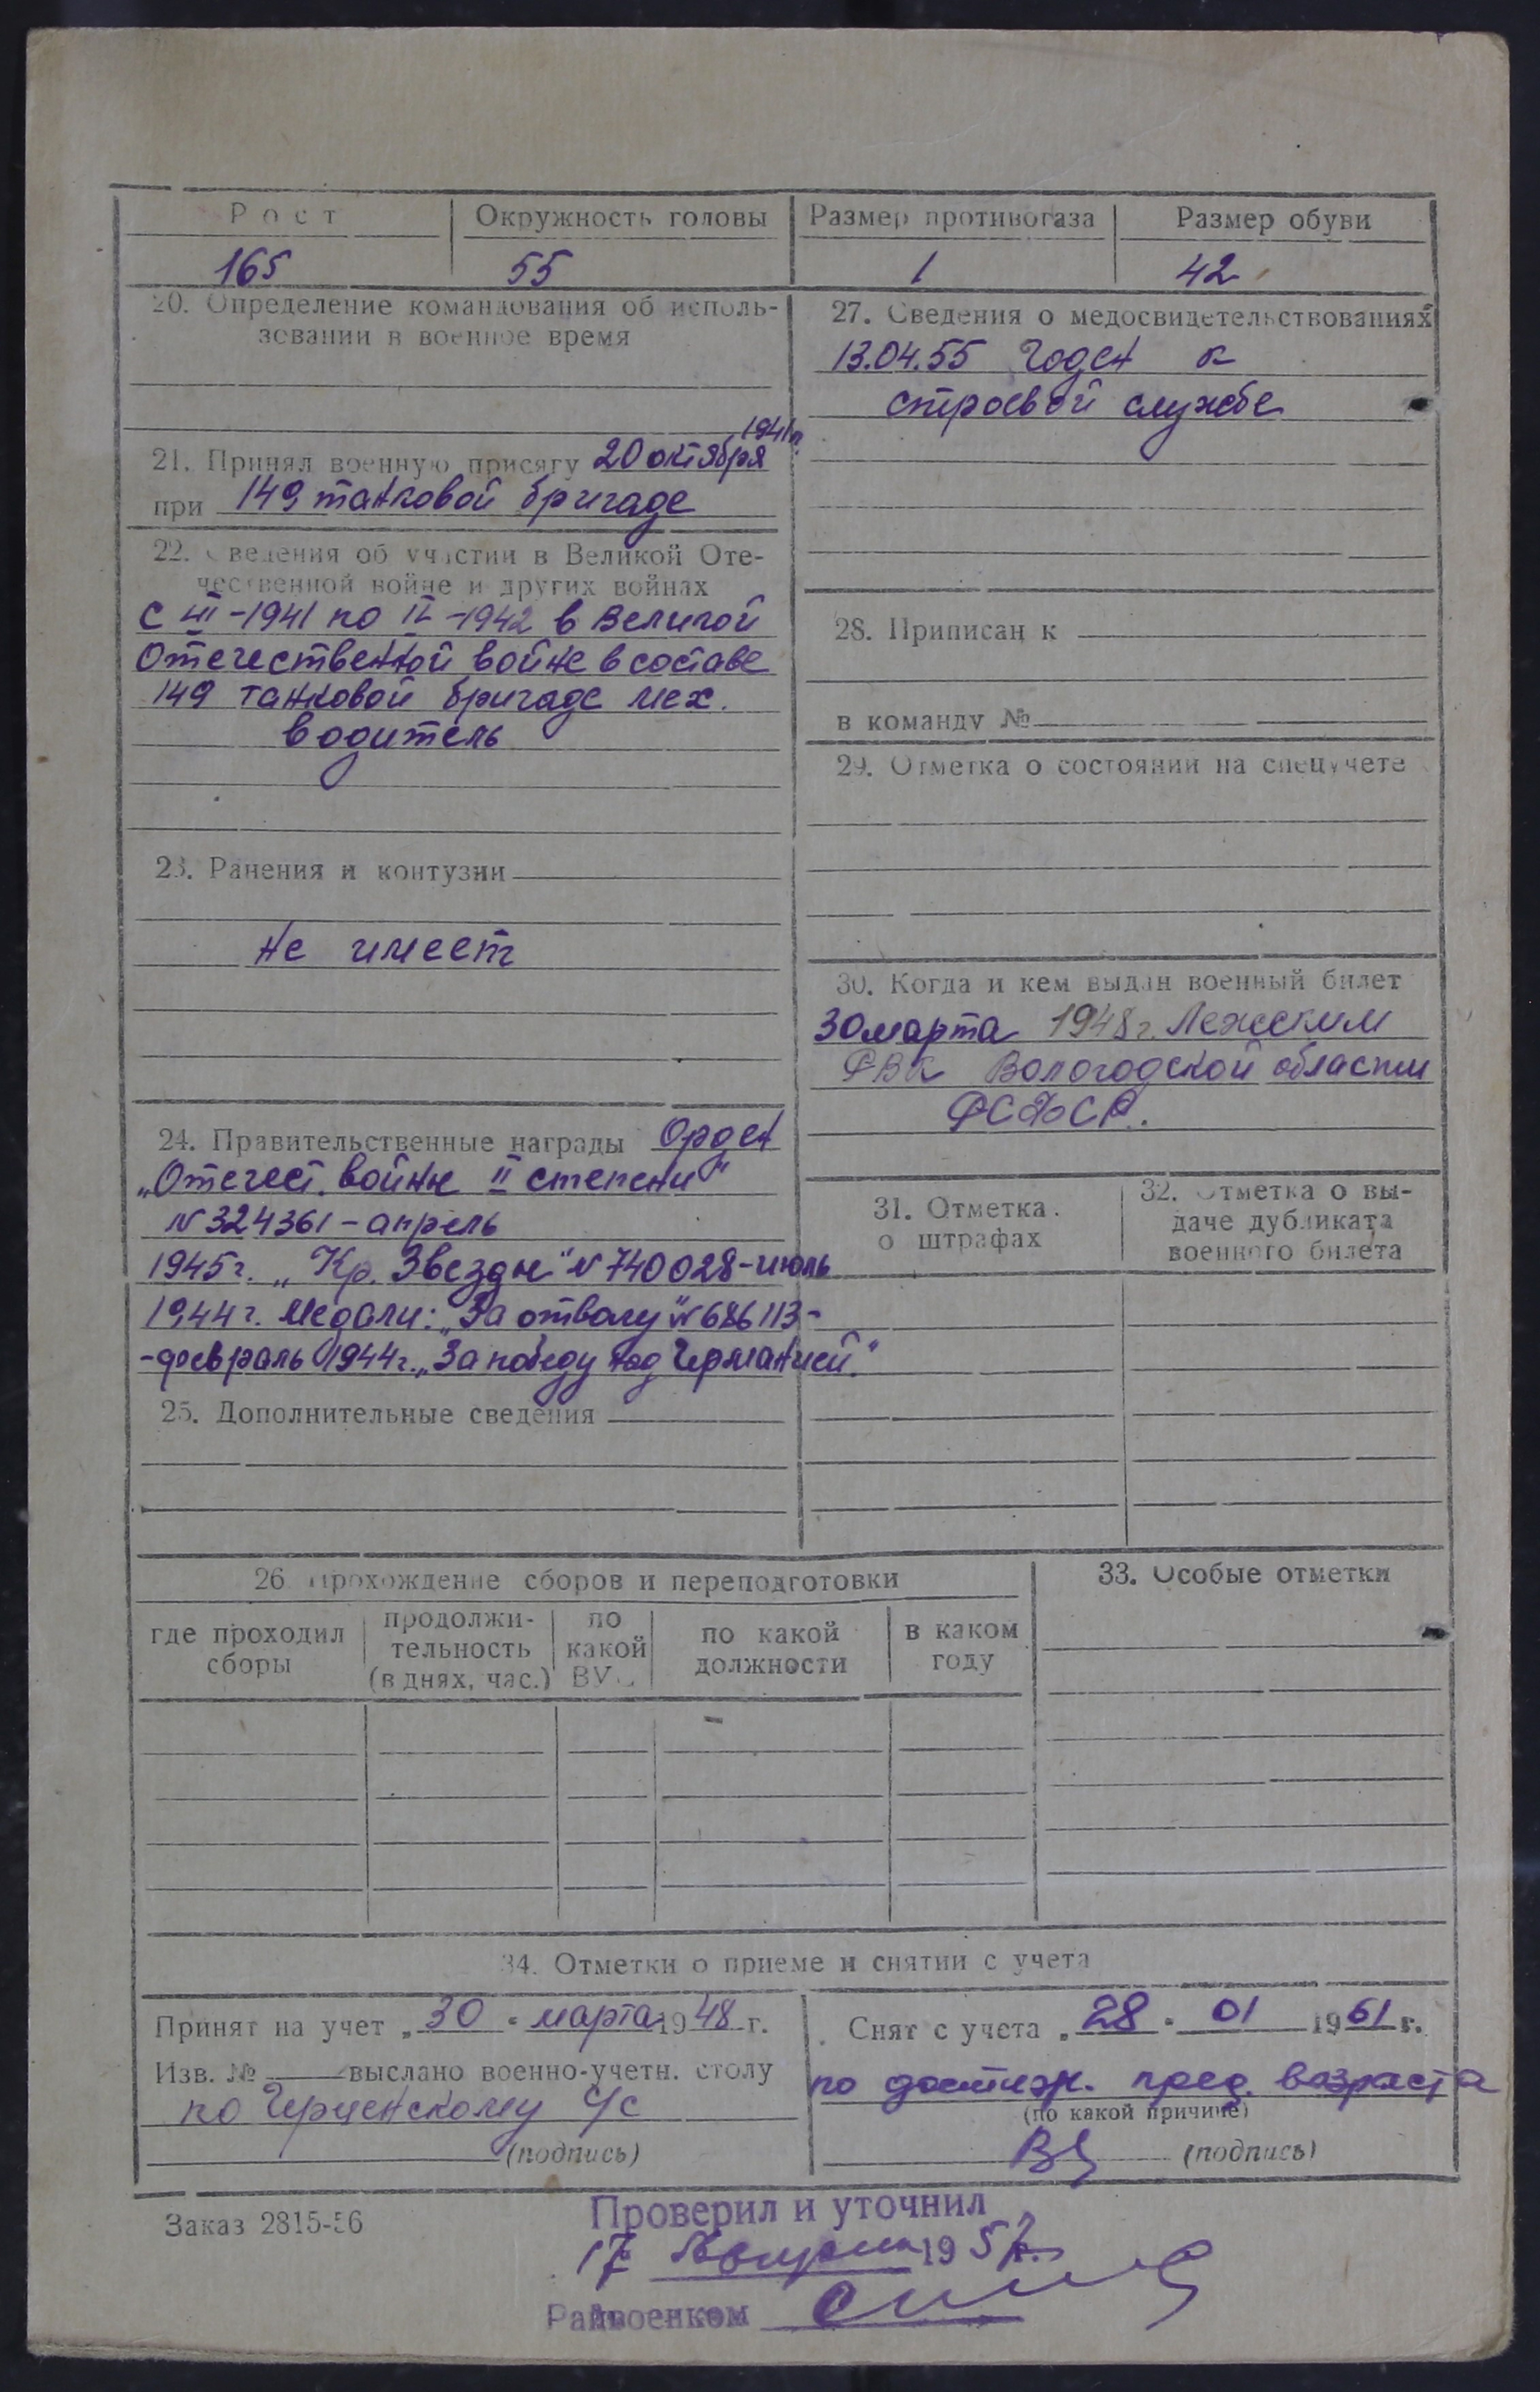 Рост
Окружность головы
Размер противогаза
Размер обуви
165
55
1
42
20. Определение командования об исполь-
зовании в военное время
1941 г.
21. Принял военную присягу 20 октября
при 149 танковой бригаде
22. Сведения об участии в Великой Оте-
чественной войне и других войнах
с III-1941 по IX-1942 в Великой
Отечественной войне в составе
149 танковой бригаде мех.
водитель
23. Ранения и контузии
не имеет
24. Правительственные награды Орден
„Отечест. войны II степени"
№ 324361 - апрель
1945 г. „Кр. Звезды" № 740028 - июль
1944 г. Медали: „За отвагу" № 686113 -
- февраль 1944 г. „За победу над Германией."
25. Дополнительные сведения
27. Сведения о медосвидетельствованиях
13.04.55 годен к
строевой службе
28. Приписан к
в команду №
29. Отметка о состоянии на спецучете
30. Когда и кем выдан военный билет
30 марта 1948 г. Лежским
РВК Вологодской области
РСФСР.
31. Отметка
о штрафах
32. Отметка о вы-
даче дубликата
военного билета
26. Прохождение сборов и переподготовки
где проходил
сборы
продолжи-
тельность
(в днях, час.)
по
какой
ВУС
по какой
должности
в каком
году
33. Особые отметки
34. Отметки о приеме и снятии с учета
Принят на учет „30" марта 1948 г.
Изв. № выслано военно-учетн. столу
по с/с
(подпись)
Снят с учета „28" 01 1961 г.
по достиж. пред. возраста
(по какой причине)
(подпись)
Заказ 2815-56
Проверил и уточнил
17 августа 1957 г.
Райвоенком